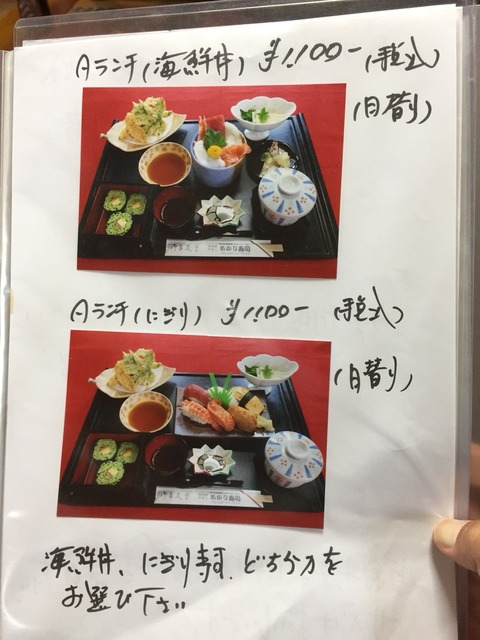 Aランチ(海鮮丼) ¥1,100- (税込)
(月替り)
Aランチ(にぎり) ¥1,100- (税込)
(月替り)
海鮮丼、にぎり寿司、どちらかを
お選び下さい